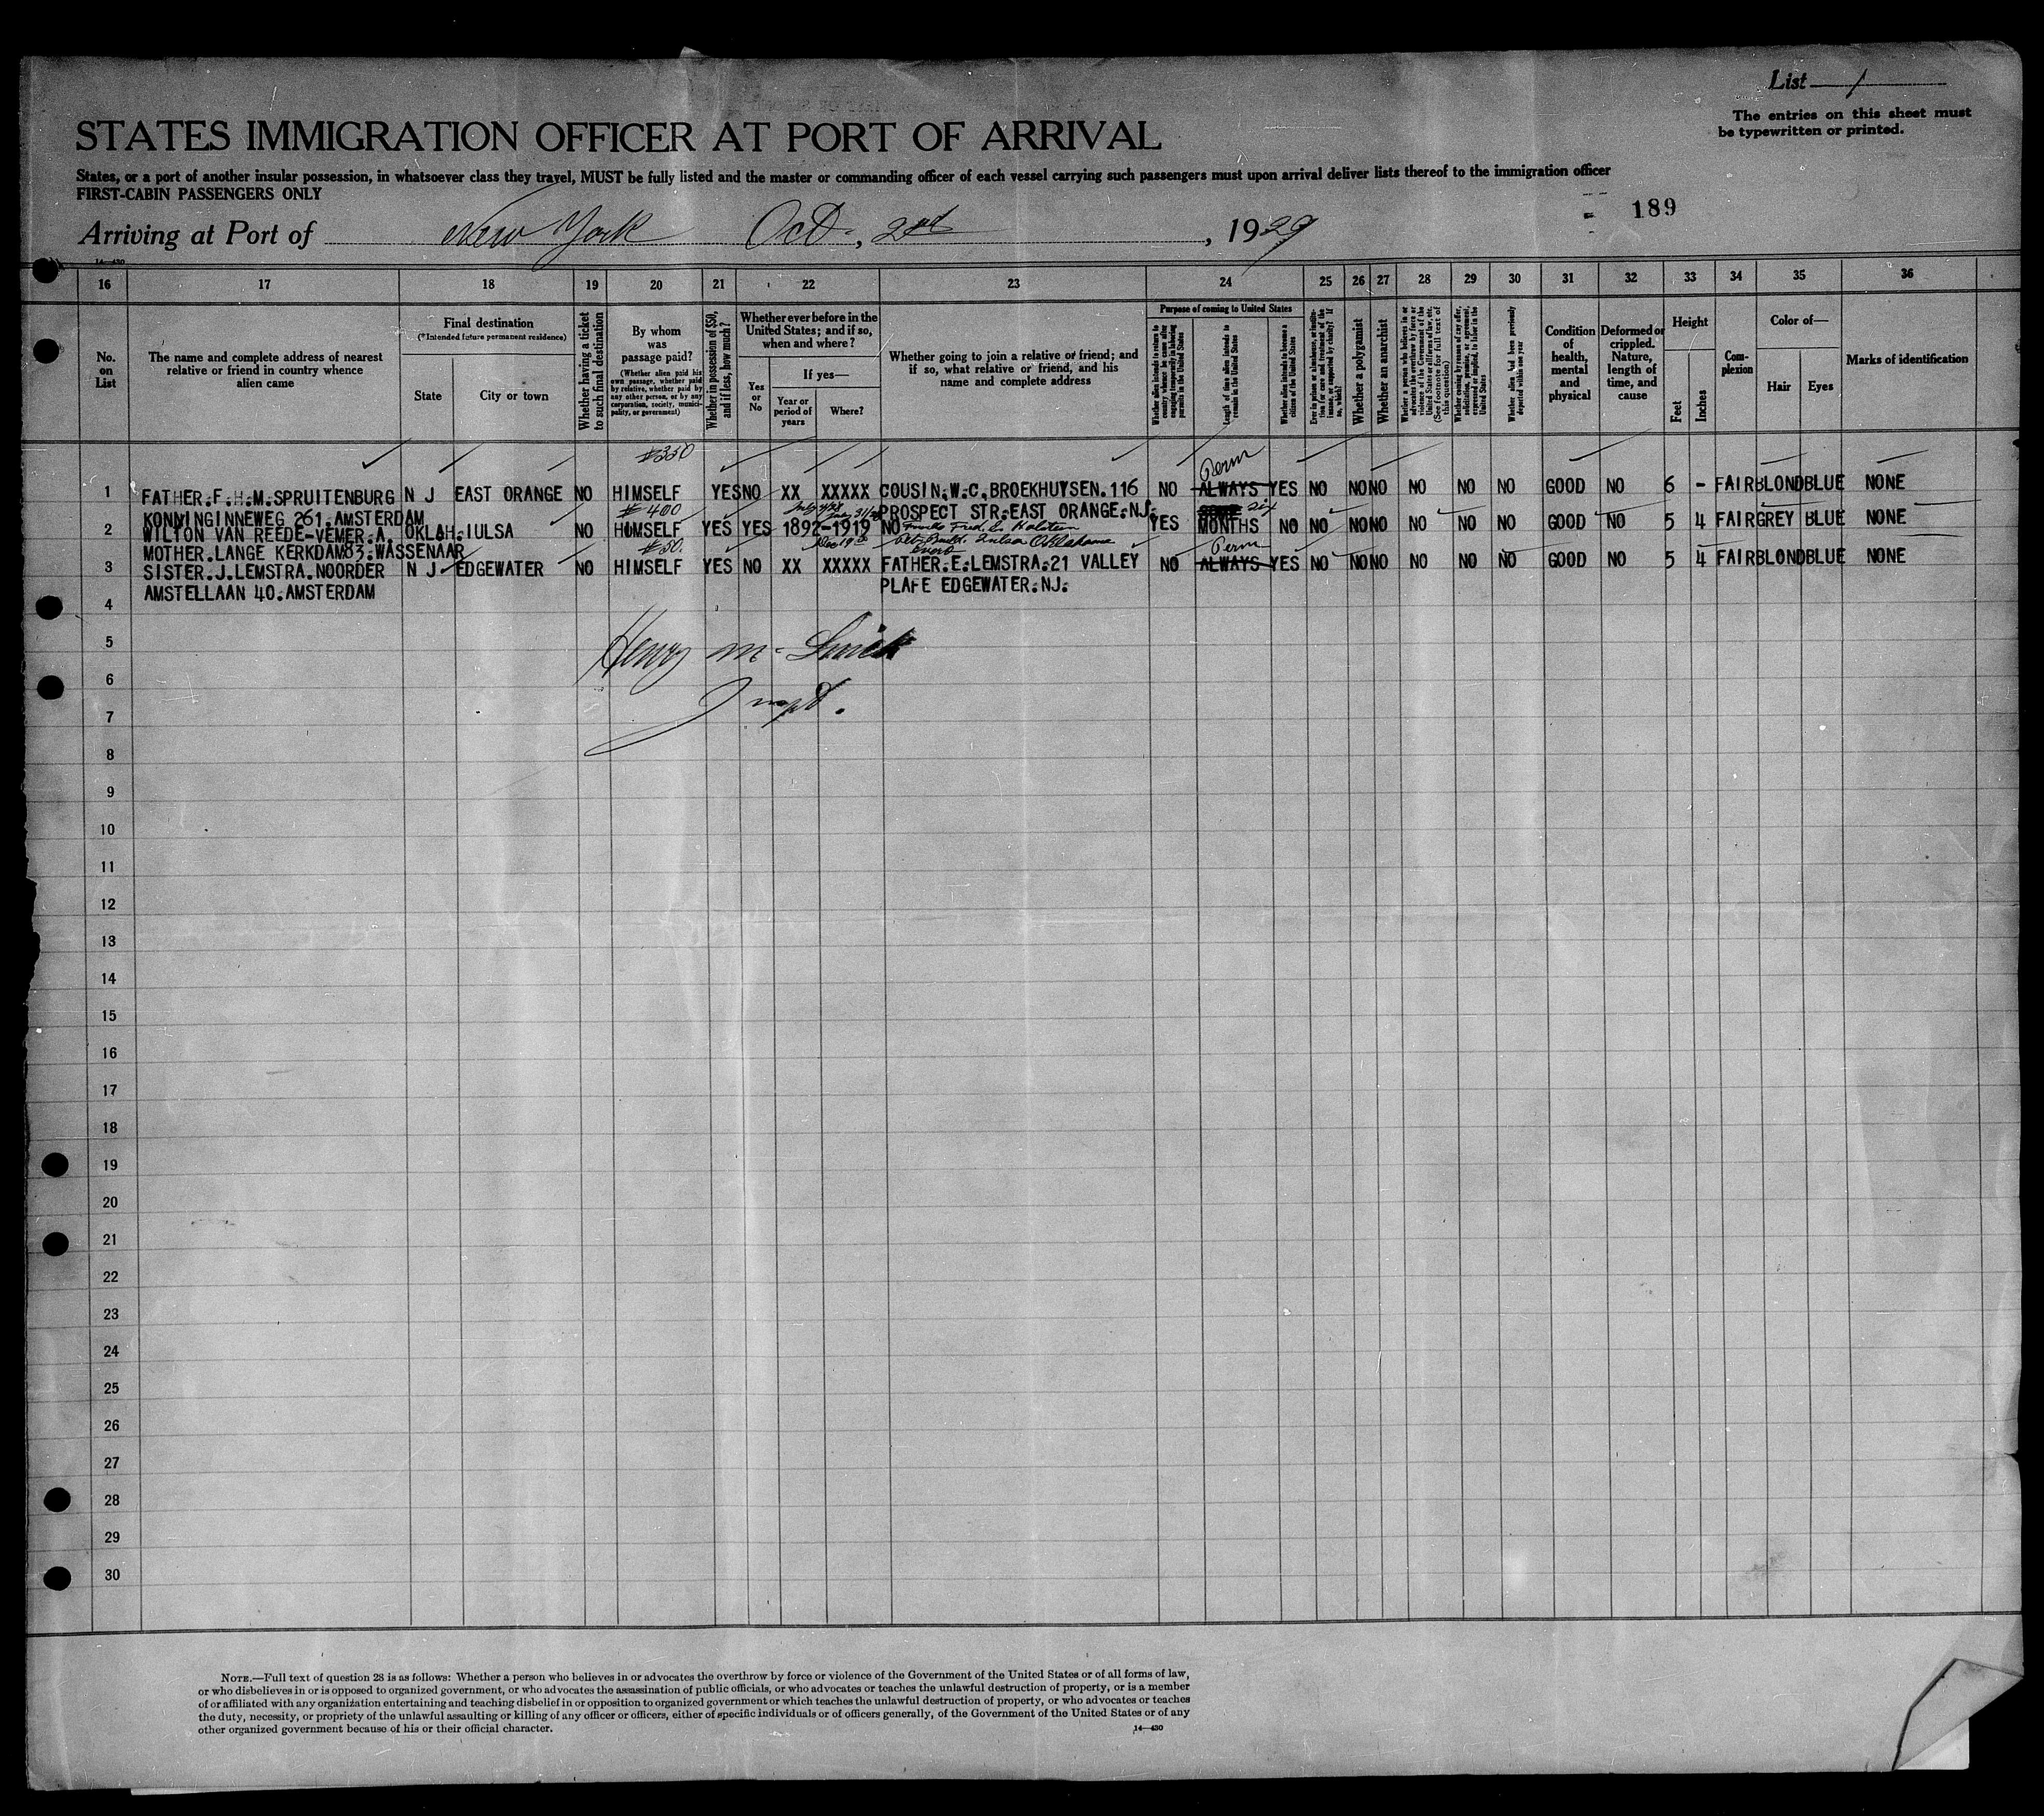 List 1
The entries on this sheet must
be typewritten or printed.
STATES IMMIGRATION OFFICER AT PORT OF ARRIVAL
States, or a port of another insular possession, in whatsoever class they travel, MUST be fully listed and the master or commanding officer of each vessel carrying such passengers must upon arrival deliver lists thereof to the immigration officer
FIRST-CABIN PASSENGERS ONLY
189
Arriving at Port of New York Oct., 2nd, 1929
14—430
16 17 18 19 20 21 22 23 24 25 26 27 28 29 30 31 32 33 34 35 36
No. on List
The name and complete address of nearest relative or friend in country whence alien came
Final destination
(*Intended future permanent residence)
State
City or town
Whether having a ticket to such final destination
By whom was passage paid?
(Whether alien paid his own passage, whether paid by relative, whether paid by any other person, or by any corporation, society, municipality, or government)
Whether in possession of $50, and if less, how much?
Whether ever before in the United States; and if so, when and where?
Yes or No
If yes—
Year or period of years
Where?
Whether going to join a relative or friend; and if so, what relative or friend, and his name and complete address
Purpose of coming to United States
Whether alien intends to return to country whence he came after engaging temporarily in laboring pursuits in the United States
Length of time alien intends to remain in the United States
Whether alien intends to become a citizen of the United States
Ever in prison or almshouse, or institution for care and treatment of the insane, or supported by charity? If so, which?
Whether a polygamist
Whether an anarchist
Whether a person who believes in or advocates the overthrow by force or violence of the Government of the United States or all forms of law, etc. (See footnote for full text of this question)
Whether coming by reason of any offer, solicitation, promise, or agreement, expressed or implied, to labor in the United States
Whether alien had been previously deported within one year
Condition of health, mental and physical
Deformed or crippled. Nature, length of time, and cause
Height
Feet
Inches
Complexion
Color of—
Hair
Eyes
Marks of identification
$350 Perm
1 FATHER.F.H.M.SPRUITENBURG N J EAST ORANGE NO HIMSELF YES NO XX XXXXX COUSIN.W.C.BROEKHUYSEN.116 NO ALWAYS YES NO NO NO NO NO NO GOOD NO 6 - FAIR BLOND BLUE NONE
KONNINGINNEWEG 261.AMSTERDAM $400 PROSPECT STR.EAST ORANGE.NJ. SOME six
2 WILTON VAN REEDE-VEMER.A. OKLAH.IULSA NO HIMSELF YES YES 1892-1919 NO Friend Fred. E. Holsten YES MONTHS NO NO NO NO NO NO NO GOOD NO 5 4 FAIR GREY BLUE NONE
MOTHER.LANGE KERKDAM83.WASSENAAR $50. Tulsa Oklahoma Perm
3 SISTER.J.LEMSTRA.NOORDER N J EDGEWATER NO HIMSELF YES NO XX XXXXX FATHER.E.LEMSTRA.21 VALLEY NO ALWAYS YES NO NO NO NO NO NO GOOD NO 5 4 FAIR BLOND BLUE NONE
AMSTELLAAN 40.AMSTERDAM PLAFE EDGEWATER.NJ.
4
5
Henry M.
6
7
Inspt.
8
9
10
11
12
13
14
15
16
17
18
19
20
21
22
23
24
25
26
27
28
29
30
NOTE.—Full text of question 28 is as follows: Whether a person who believes in or advocates the overthrow by force or violence of the Government of the United States or of all forms of law,
or who disbelieves in or is opposed to organized government, or who advocates the assassination of public officials, or who advocates or teaches the unlawful destruction of property, or is a member
of or affiliated with any organization entertaining and teaching disbelief in or opposition to organized government or which teaches the unlawful destruction of property, or who advocates or teaches
the duty, necessity, or propriety of the unlawful assaulting or killing of any officer or officers, either of specific individuals or of officers generally, of the Government of the United States or of any
other organized government because of his or their official character.
14—430